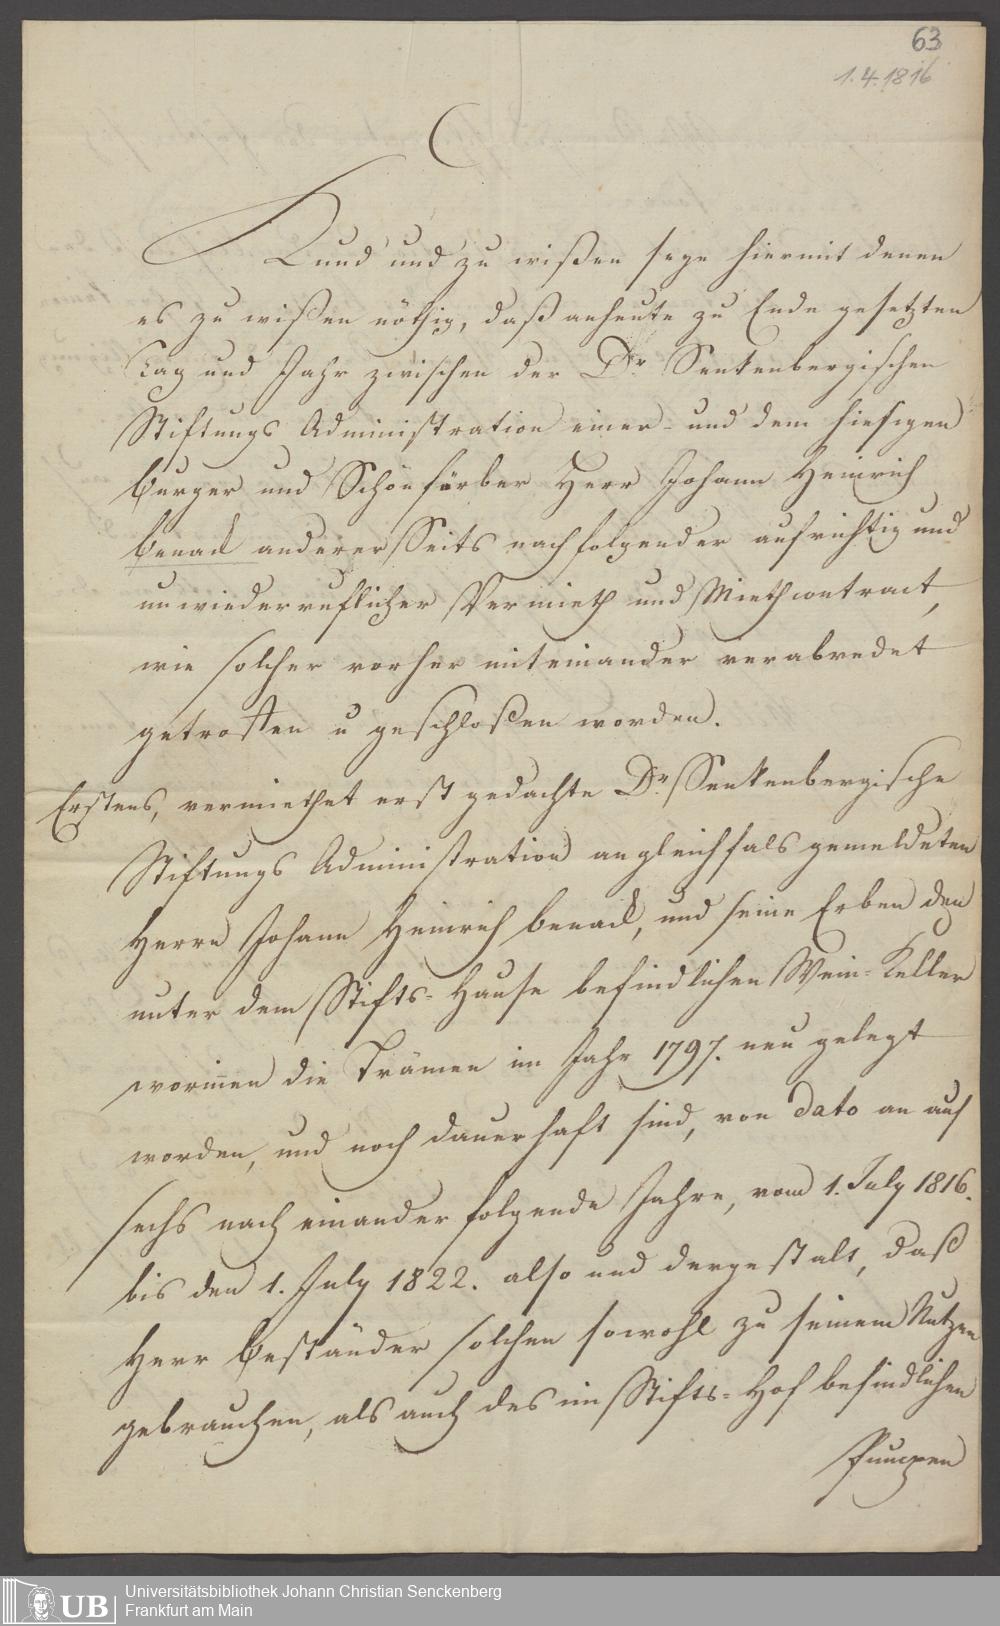 63
1.4.1816
Kund und zu wißen seye hiermit denen
es zu wißen nöthig, daß anheute zu Ende gesetzten
Tag und Jahr zwischen der Dr Senkenbergischen
Stiftungs Administration einer- und dem hiesigen
Burger und Schönfärber Herr Johann Heinrich
Benack andererSeits nachfolgender aufrichtig und
unwiederruflicher Vermieth und Miethcontract,
wie solcher vorher miteinander verabredet
getroffen u geschloßen worden.
Erstens, vermiethet erst gedachte Dr. Senkenbergische
Stiftungs Administration an gleichfals gemeldeten
Herrn Johann Heinrich Benack, und seine Erben den
unter dem Stifts-Hause befindlichen Wein-Keller
worinnen die Trämen im Jahr 1797. neu gelegt
worden, und noch dauerhaft sind, von dato an auf
sechs nach einander folgende Jahre, vom 1. July 1816.
bis den 1. July 1822. also und dergestalt, daß
Herr Beständer solchen sowohl zu seinem Nutzen
gebrauchen, als auch des im Stifts-Hof befindlichen
Pumpen
UB
Universitätsbibliothek Johann Christian Senckenberg
Frankfurt am Main